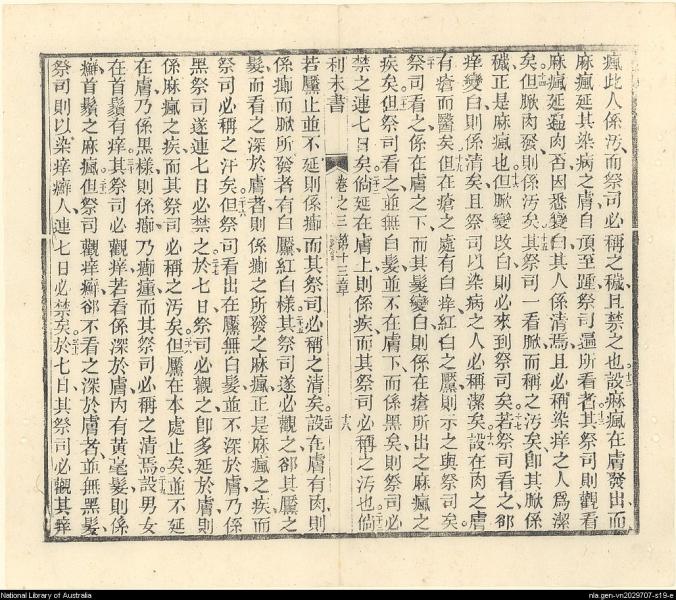 瘋此人係汚而祭司必稱之穢且禁之也設痳瘋在膚發出而
麻瘋延其染病之膚自頂至踵祭司遍所看者其祭司則觀看
麻瘋延遍肉否因悉變白其人係清焉且必稱染痒之人為潔
矣但厥肉發則係汚矣其祭司一看厥而稱之汚矣即其厥係
穢正是麻瘋也但厥變改白則必來到祭司矣若祭司看之卻
痒變白則係清矣且祭司以染病之人必稱潔矣設在肉之膚
有瘡而醫矣但在瘡之處有白痒紅白之黶則示之與祭司矣
祭司看之係在膚之下而其髮變白則係在瘡所出之麻瘋之
疾矣但祭司看之並無白髮並不在膚下而係黑矣則祭司必
禁之連七日矣倘延在膚上則係疾而其祭司必稱之汚也倘
利未書 卷之三 第十三章 十八
若黶止並不延則係瘢而其祭司必稱之清矣設在膚有肉則
係瘢而厥所發者有白黶紅白樣其祭司遂必觀之卻其黶之
髮而看之深於膚者則係瘢之所發之麻瘋正是麻瘋之疾而
祭司必稱之汙矣但祭司看出在黶無白髮並不深於膚乃係
黑祭司遂連七日必禁之於七日祭司必觀之即多延於膚則
係麻瘋之疾而其祭司必稱之汚矣但黶在本處止矣並不延
在膚乃係黑樣則係瘢乃瘢瘇而其祭司必稱之清焉設男女
在首鬚有痒其祭司必觀痒若看係深於膚內有黃毫髮則係
癬首鬚之麻瘋但祭司觀痒癬卻不看之深於膚者並無黑髮
祭司則以染痒癬人連七日必禁矣於七日其祭司必觀其痒
National Library of Australia
nla.gen-vn2029707-s19-e